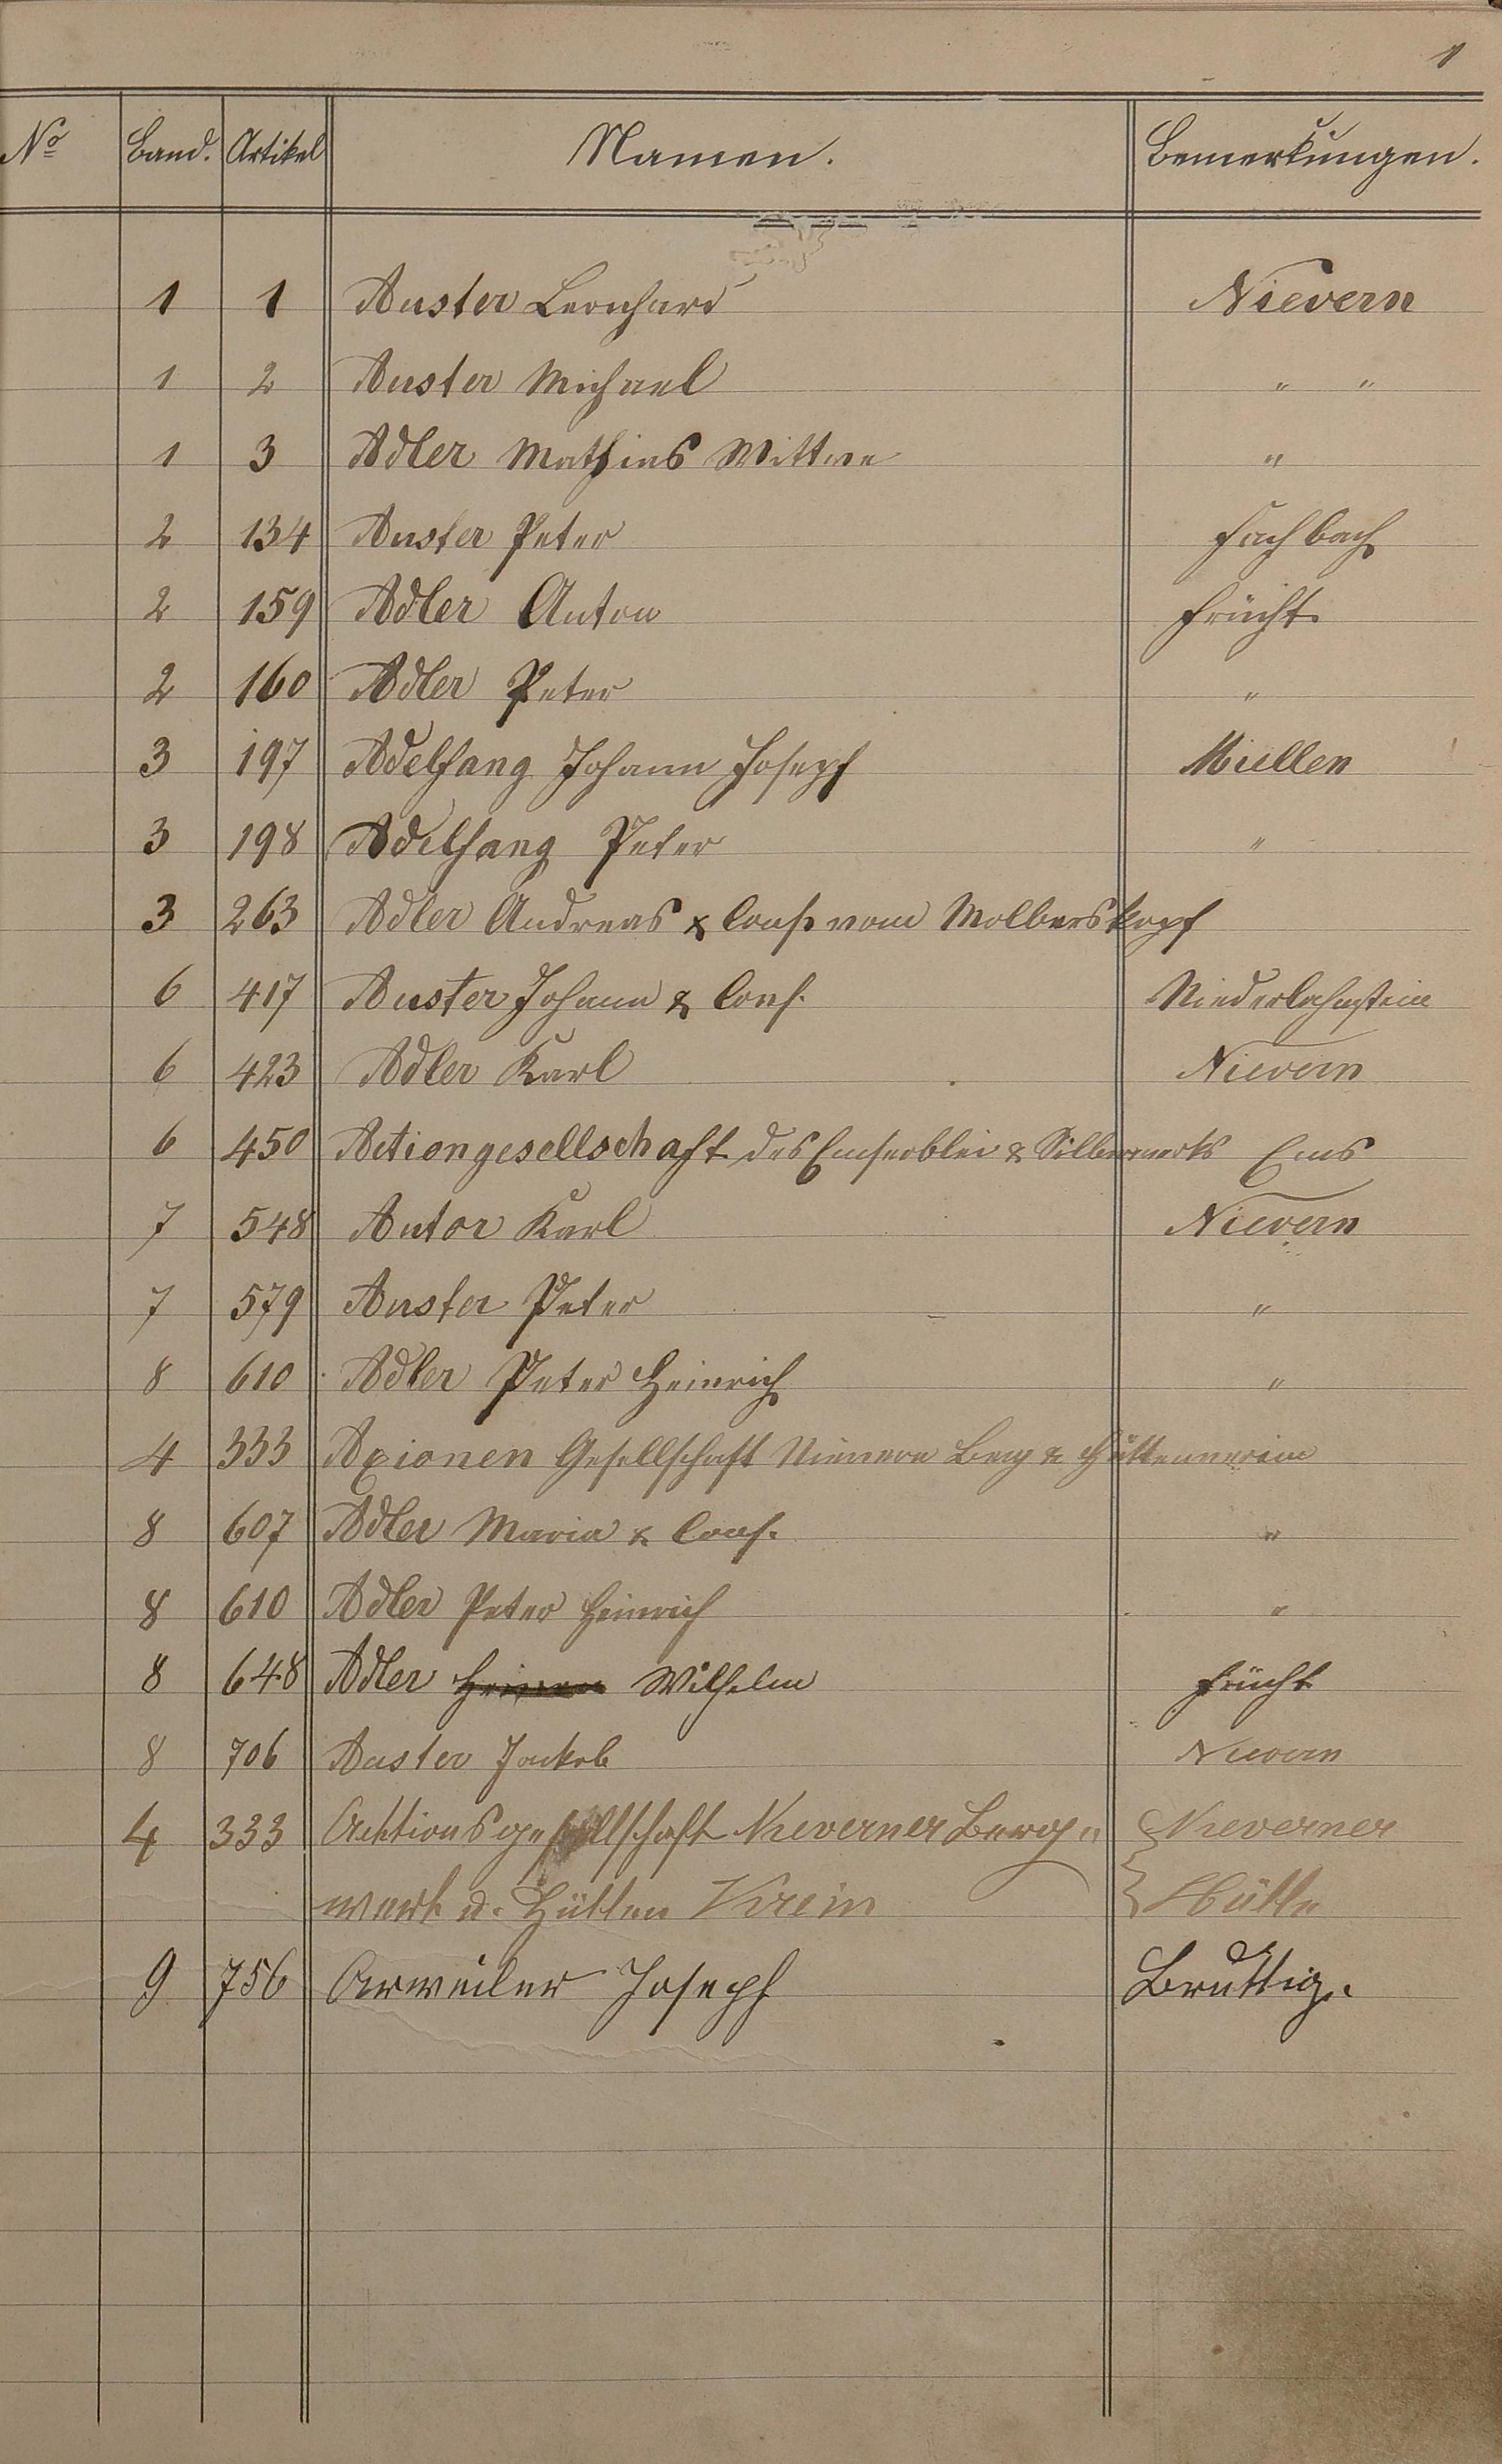 1
No Band. Artikel Namen. Bemerkungen.
1 1 Auster Leonhard Nievern
1 2 Auster Michael " "
1 3 Adler Mathias Wittwe "
2 134 Auster Peter Fachbach
2 159 Adler Anton Frücht
2 160 Adler Peter "
3 197 Adelfang Johann Joseph Miellen
3 198 Adelfang Peter "
3 263 Adler Andreas & Cons. vom Molberskopf
6 417 Auster Johann & Cons. Niederlahnstein
6 423 Adler Karl Nievern
6 450 Actiengesellschaft des Emserblei & Silberwerks Ems
7 548 Autor Karl Nievern
7 579 Auster Peter "
8 610 Adler Peter Heinrich "
4 333 Axionen Gesellschaft Nievern Berg & Hüttenverein
8 607 Adler Maria & Cons. "
8 610 Adler Peter Heinrich "
8 648 Adler Wilhelm Frücht
8 706 Auster Jackob Nievern
4 333 Acktionsgesellschaft Nieverner Berg= Nieverner
werk u. Hütten Verein Hütte
9 756 Arweiler Joseph Bruttig.